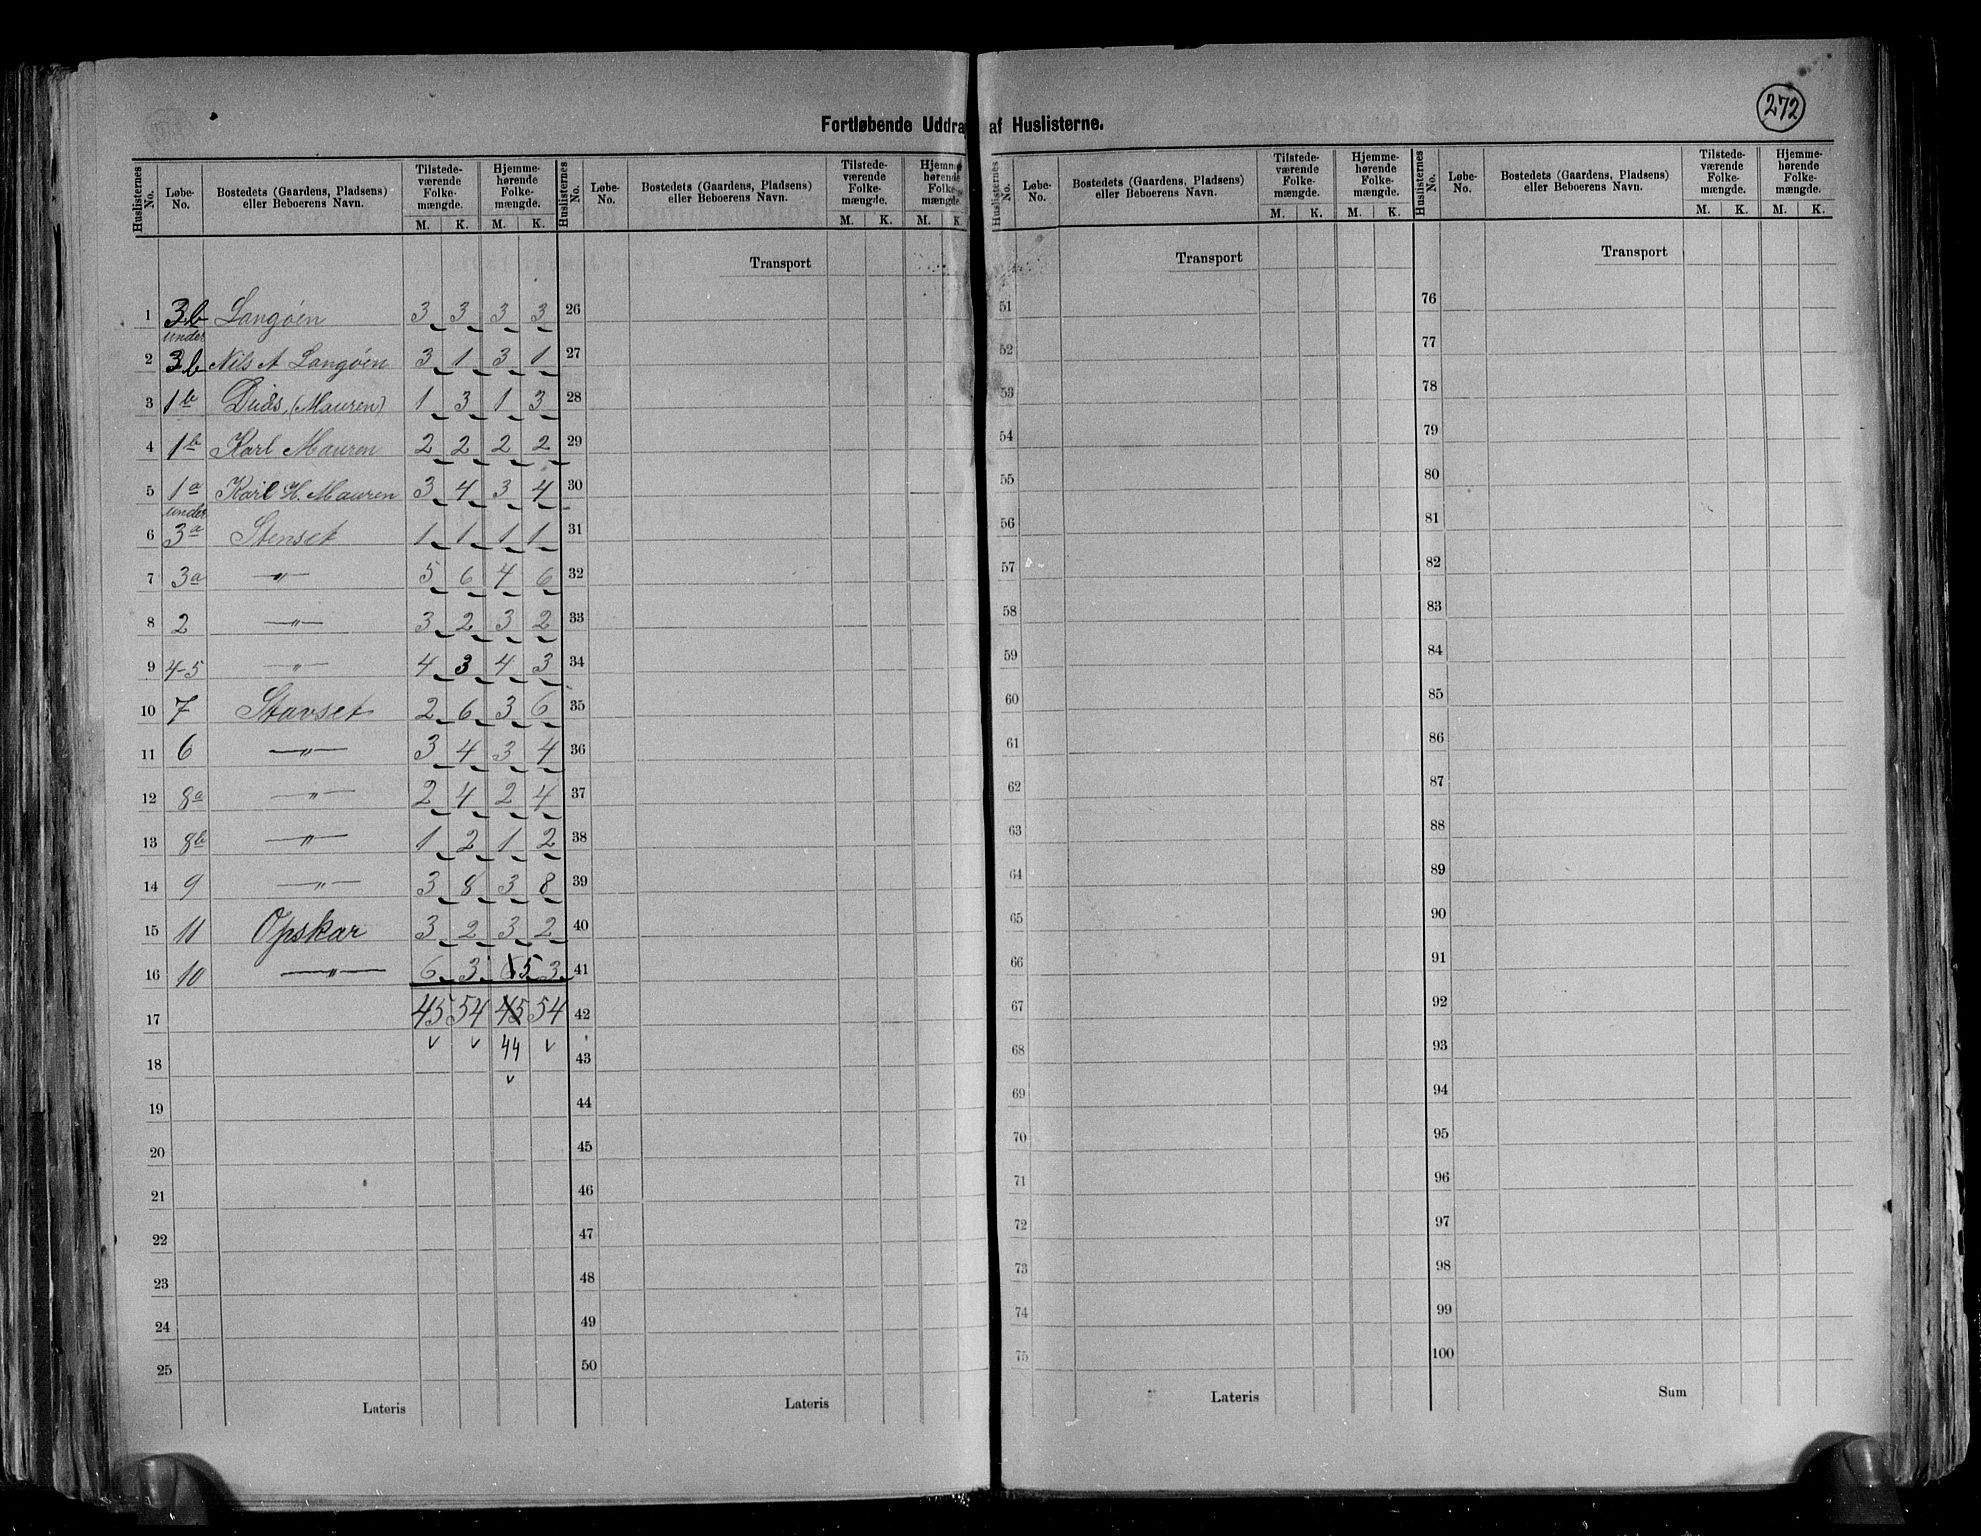 272
Fortløbende Uddra af Huslisterne.
Huslisternes No. | Løbe-No. | Bostedets (Gaardens, Pladsens) eller Beboerens Navn. | Tilstedeværende Folkemængde. M. K. | Hjemmehørende Folkemængde. M. K.
Huslisternes No. | Løbe-No. | Bostedets (Gaardens, Pladsens) eller Beboerens Navn. | Tilstedeværende Folkemængde. M. K. | Hjemmehørende Folkemængde. M. K.
Huslisternes No. | Løbe-No. | Bostedets (Gaardens, Pladsens) eller Beboerens Navn. | Tilstedeværende Folkemængde. M. K. | Hjemmehørende Folkemængde. M. K.
Huslisternes No. | Løbe-No. | Bostedets (Gaardens, Pladsens) eller Beboerens Navn. | Tilstedeværende Folkemængde. M. K. | Hjemmehørende Folkemængde. M. K.
1 3b Langøen 3 3 3 3
2 under 3b Nils A Langøen 3 1 3 1
3 1b (Mauren) 1 3 1 3
4 1b Karl Mauren 2 2 2 2
5 1a Karl H. Mauren 3 4 3 4
6 under 3a Stenset 1 1 1 1
7 3a —"— 5 6 4 6
8 2 —"— 3 2 3 2
9 4-5 —"— 4 3 4 3
10 7 Stavset 2 6 3 6
11 6 —"— 3 4 3 4
12 8a —"— 2 4 2 4
13 8b —"— 1 2 1 2
14 9 —"— 3 8 3 8
15 11 Opskar 3 2 3 2
16 10 —"— 6 3 6 5 3
17 45 54 45 54
v v 44 v
18 v
19
20
21
22
23
24
25
Lateris
Transport
26
27
28
29
30
31
32
33
34
35
36
37
38
39
40
41
42
43
44
45
46
47
48
49
50
Lateris
Transport
51
52
53
54
55
56
57
58
59
60
61
62
63
64
65
66
67
68
69
70
71
72
73
74
75
Lateris
Transport
76
77
78
79
80
81
82
83
84
85
86
87
88
89
90
91
92
93
94
95
96
97
98
99
100
Sum